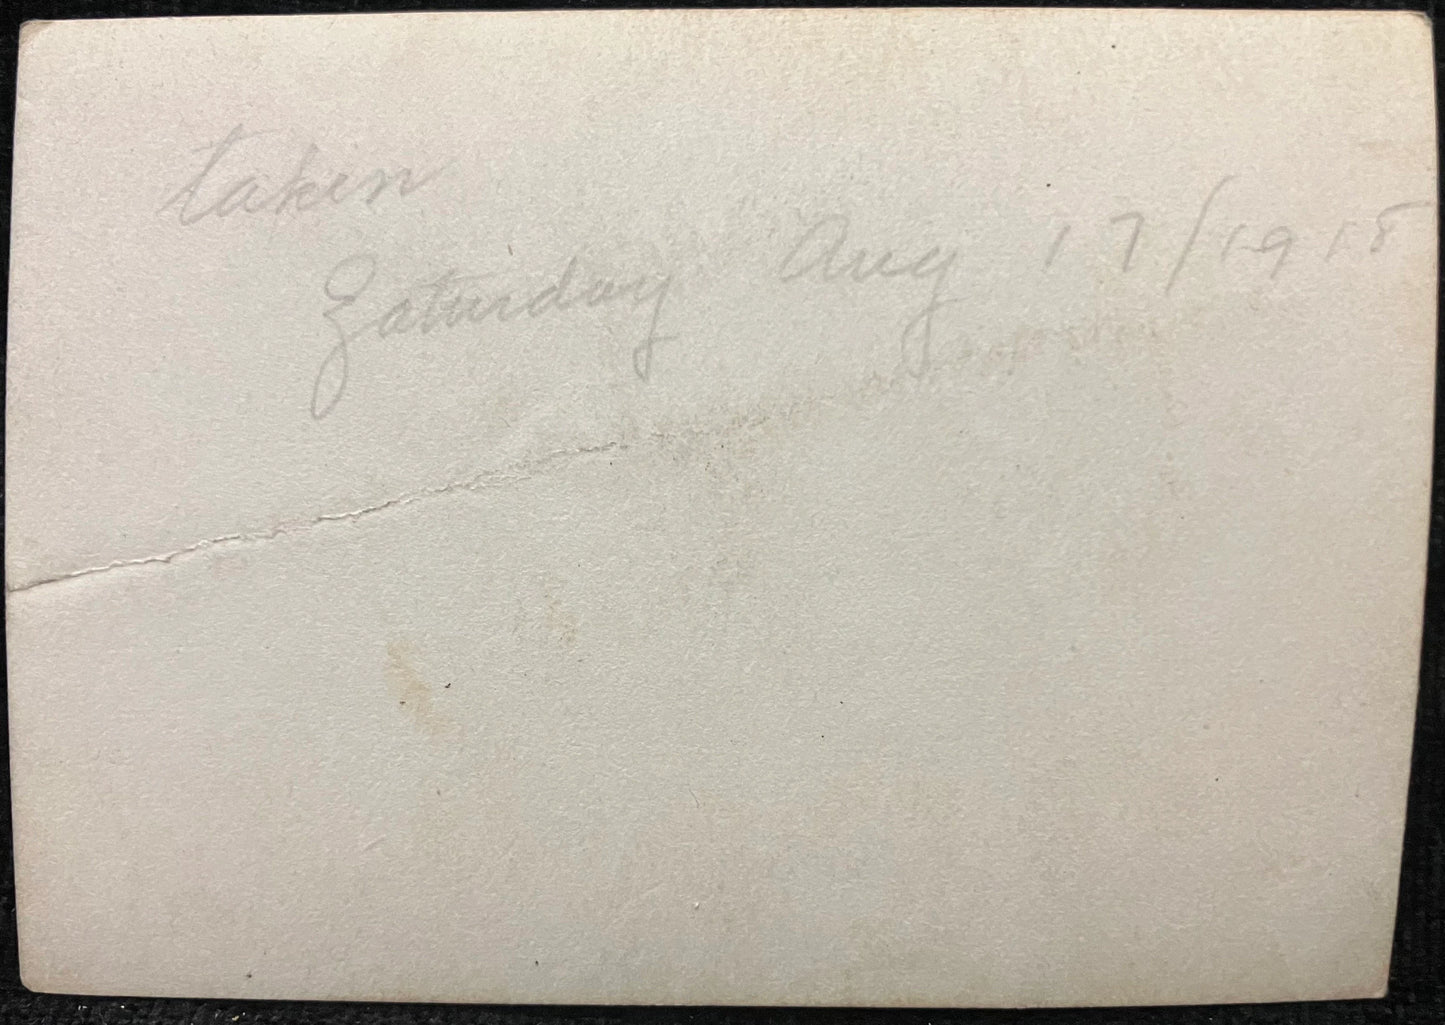 taken
Saturday Aug 17/1918